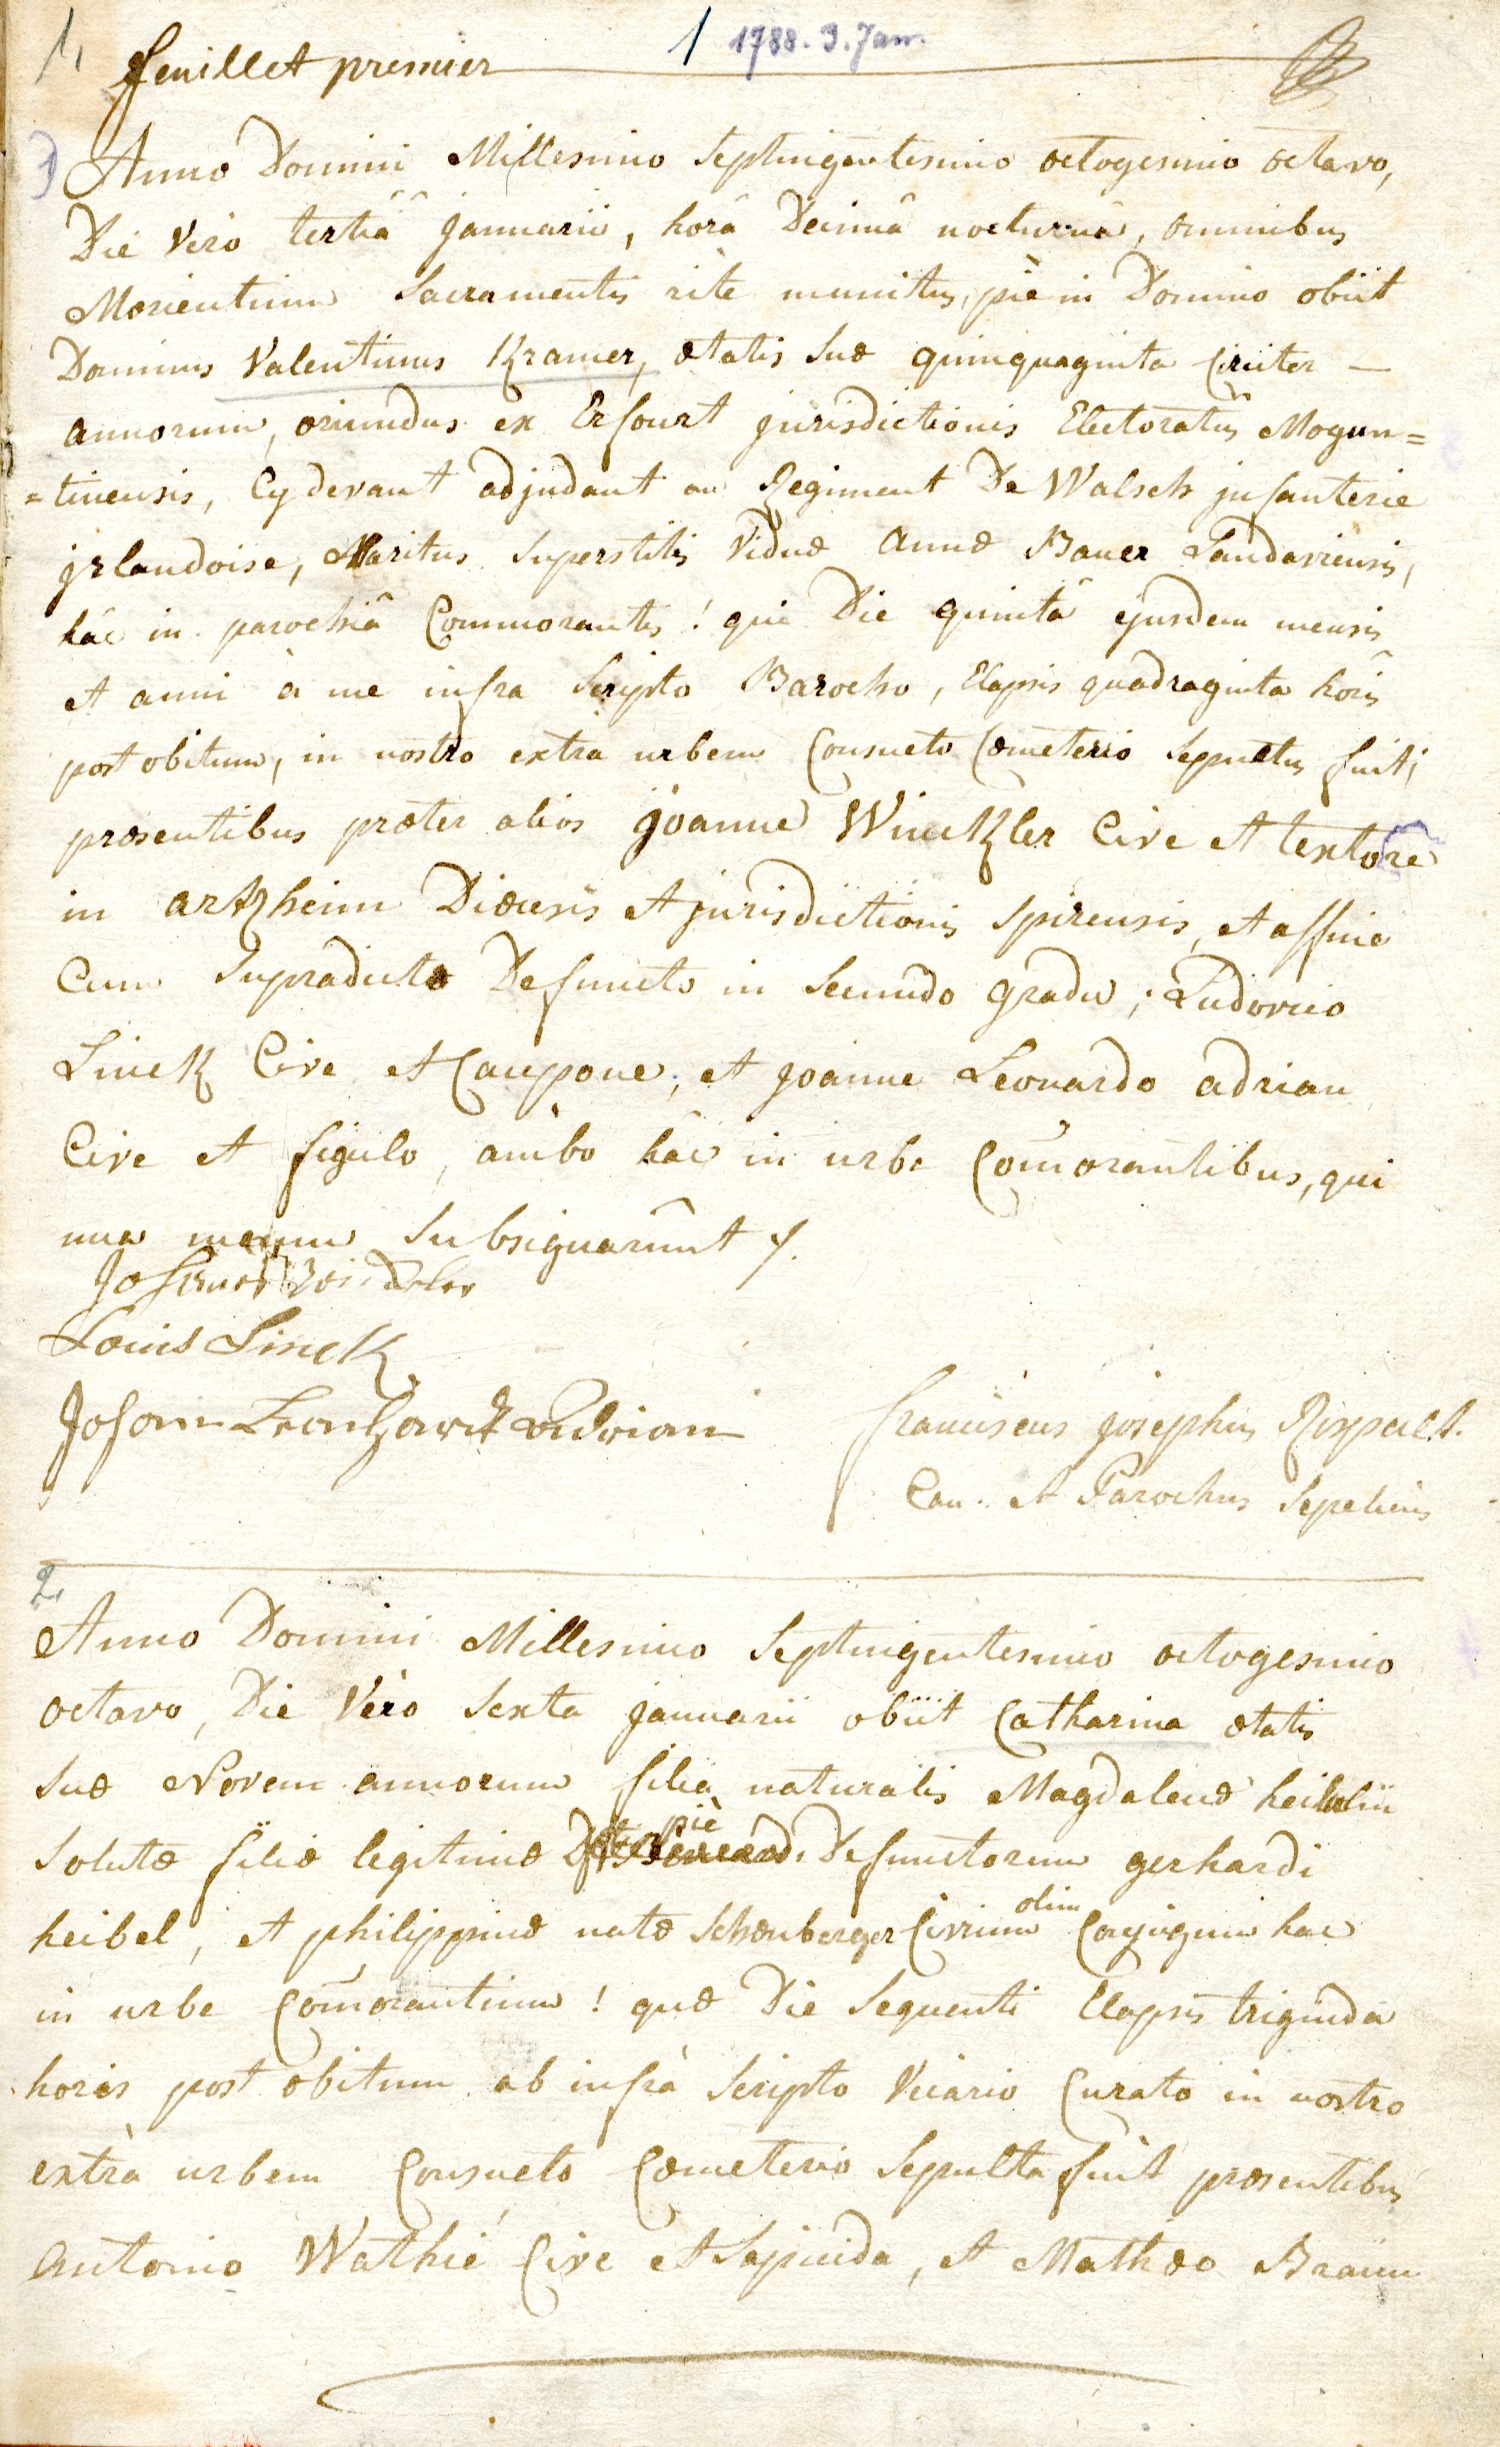 1, feuillet premier 1 1788. 3. Jan.
Anno Domini Millesimo Septingentesimo octogesimo octavo,
Die Vero tertiâ januarii, horâ Decimâ nocturnâ, omnibus
Morientium Sacramentis ritè munitus, piè in Domino obiit
Dominus Valentinus Kramer, ætatis suæ quinquaginta Circiter —
annorum, oriundus ex Erfourt jurisdictionis Electoratûs Mogun=
=tinensis, Cydevant adjudant au Regiment De Walsch infanterie
jrlandoise, Maritus superstitis Viduæ annæ Bauer Landaviensis,
hâc in parochiâ Commorantis! qui Die quintâ ejusdem mensis
et anni à me infra Scripto Parocho, Elapsis quadraginta horis
post obitum, in nostro extra urbem Consueto Cœmeterio Sepultus fuit;
præsentibus præter alios joanne Winckler Cive et textore
in artzheim Diœcesis et jurisdictionis Spirensis, et affine
Cum Supradicto Defuncto in Secundo gradu; Ludovico
Linck Cive et Caupone; et joanne Leonardo adrian
Cive et figulo, ambo hâc in urbe Com̄orantibus, qui
una mecum Subsignarunt /.
Johannes Winckler
Louis Linck
Johann Leonhardt Adrian
Franciscus josephus Rixpaeet.
Can. et Parochus Sepeliens
2,
Anno Domini Millesimo Septingentesimo octogesimo
octavo, Die Vero Sexta januarii obiit Catharina ætatis
suæ Novem annorum filia naturalis Magdalenæ heibelin
Solutæ filiæ legitimæ piè Defunctorum gerhardi
heibel, et philippinæ natæ Schœnberger Civium olim Conjugum hac
in urbe Com̄orantium! quæ Die Sequenti Elapsis triginda
horis post obitum ab infrà Scripto Vicario Curato in nostro
extrà urbem Consueto Cœmeterio Sepulta fuit præsentibus
antonio Wathié Cive et Lapicida, et Mathæo Braun